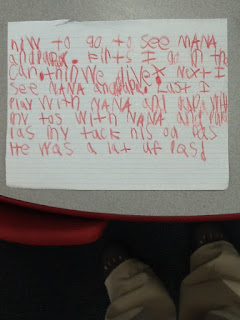 How to go to see NANA
and papa. Firts I go in the
car. thin We drive. Nixt I
see NANA and papa. Last I
Play With NANA and papa with
my tos with NANA and papa
las my
He was a lat uf las!